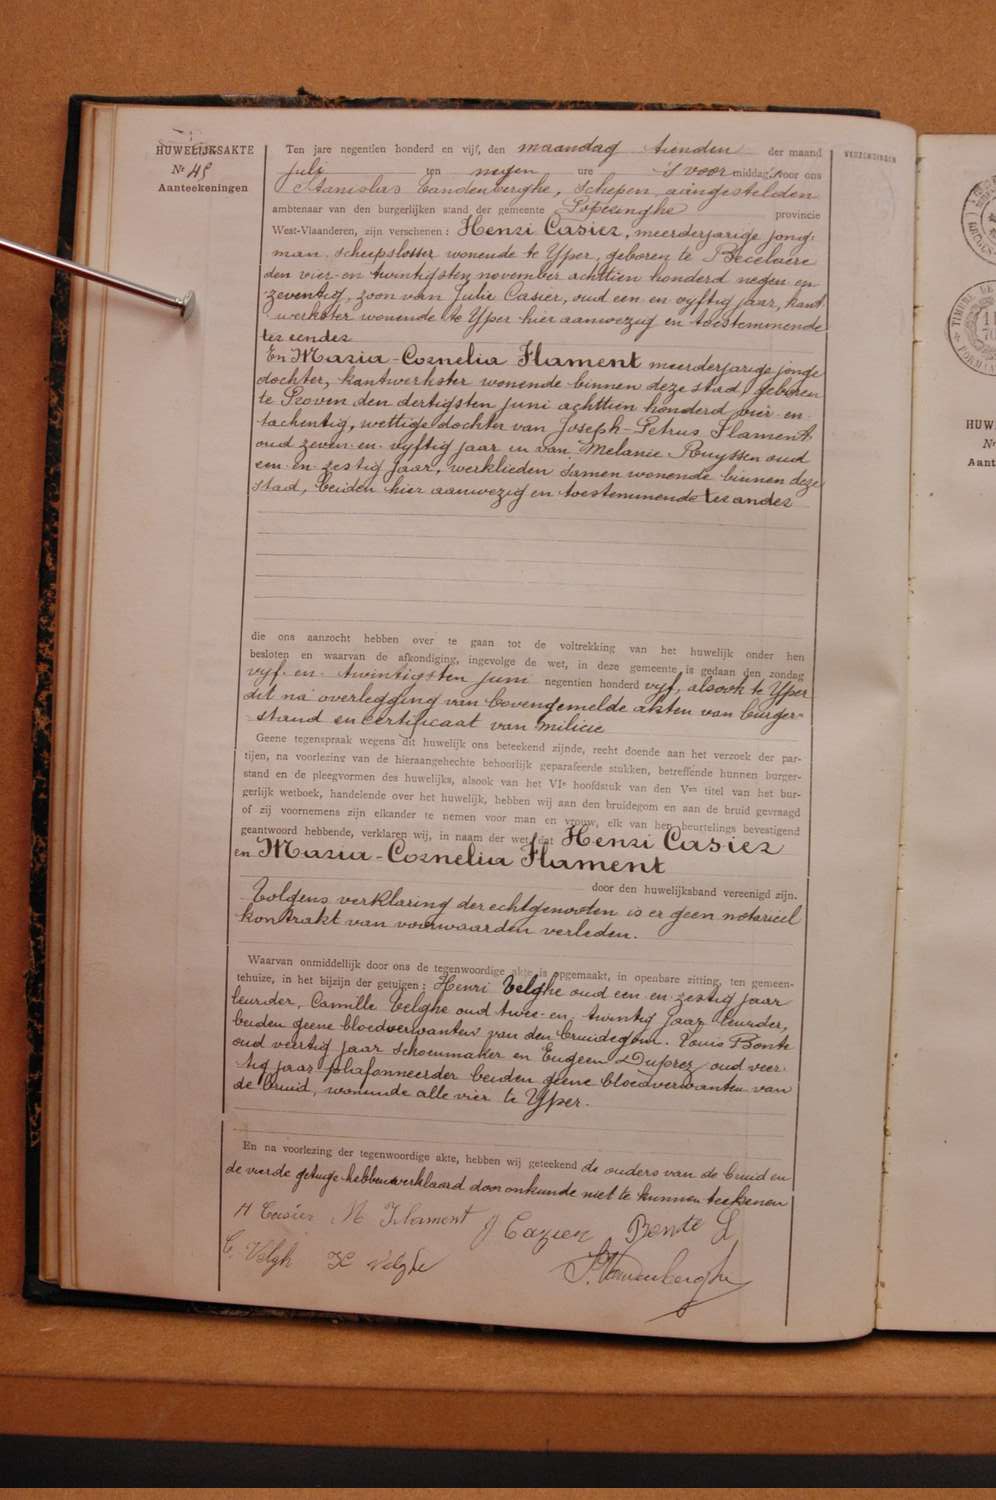 HUWELIJKSAKTE
Nr 45
Aanteekeningen
Ten jare negentien honderd en vijf, den maandag tienden der maand
juli ten negen ure 's voor middags, voor ons
Stanislas Vandenberghe, Schepen, aangestelden
ambtenaar van den burgerlijken stand der gemeente Poperinghe provincie
West-Vlaanderen, zijn verschenen: Henri Casier, meerderjarige jong-
man, scheepslosser wonende te Yper, geboren te Becelaere
den vier-en-twintigsten november achttien honderd negen-en-
zeventig, zoon van Julie Casier, oud een-en-vyftig jaar, kant-
werkster wonende te Yper hier aanwezig en toestemmende
ter eender
En Maria-Cornelia Flament meerderjarige jonge
dochter, kantwerkster wonende binnen deze stad, geboren
te Proven den dertigsten juni achttien honderd vier-en-
tachentig, wettige dochter van Joseph-Petrus Flament
oud zeven-en-vyftig jaar en van Melanie Ruyssen oud
een-en-zestig jaar, werklieden samen wonende binnen deze
stad, beiden hier aanwezig en toestemmende ter ander
die ons aanzocht hebben over te gaan tot de voltrekking van het huwelijk onder hen
besloten en waarvan de afkondiging, ingevolge de wet, in deze gemeente is gedaan den zondag
vyf-en-twintigsten juni negentien honderd vyf, alsook te Yper
dit na overlegging van bovengemelde akten van burger-
stand en certificaat van milicie
Geene tegenspraak wegens dit huwelijk ons beteekend zijnde, recht doende aan het verzoek der par-
tijen, na voorlezing van de hieraangehechte behoorlijk geparafeerde stukken, betreffende hunnen burger-
stand en de pleegvormen des huwelijks, alsook van het VIe hoofdstuk van den Ven titel van het bur-
gerlijk wetboek, handelende over het huwelijk, hebben wij aan den bruidegom en aan de bruid gevraagd
of zij voornemens zijn elkander te nemen voor man en vrouw, elk van hen beurtelings bevestigend
geantwoord hebbende, verklaren wij, in naam der wet, dat Henri Casier
en Maria-Cornelia Flament
door den huwelijksband vereenigd zijn.
Volgens verklaring der echtgenooten is er geen notarieel
kontrakt van voorwaarden verleden.
Waarvan onmiddellijk door ons de tegenwoordige akte is opgemaakt, in openbare zitting, ten gemeen-
tehuize, in het bijzijn der getuigen: Henri Velghe oud een-en-zestig jaar
leurder, Camille Velghe oud twee-en-twintig jaar leurder,
beiden geene bloedverwanten van den bruidegom. Louis Bonte
oud veertig jaar schoenmaker en Eugeen Duprez oud veer-
tig jaar plafonneerder beiden geene bloedverwanten van
de bruid, wonende alle vier te Yper.
En na voorlezing der tegenwoordige akte, hebben wij geteekend de ouders van de bruid en
de vierde getuige hebben verklaard door onkunde niet te kunnen teekenen
H Casier M Flament J Cazier Bonte L
C. Velgh H Velghe
S. Vandenberghe
VERZENDINGEN
TIMBRE DE
HUW
Nr
Aant